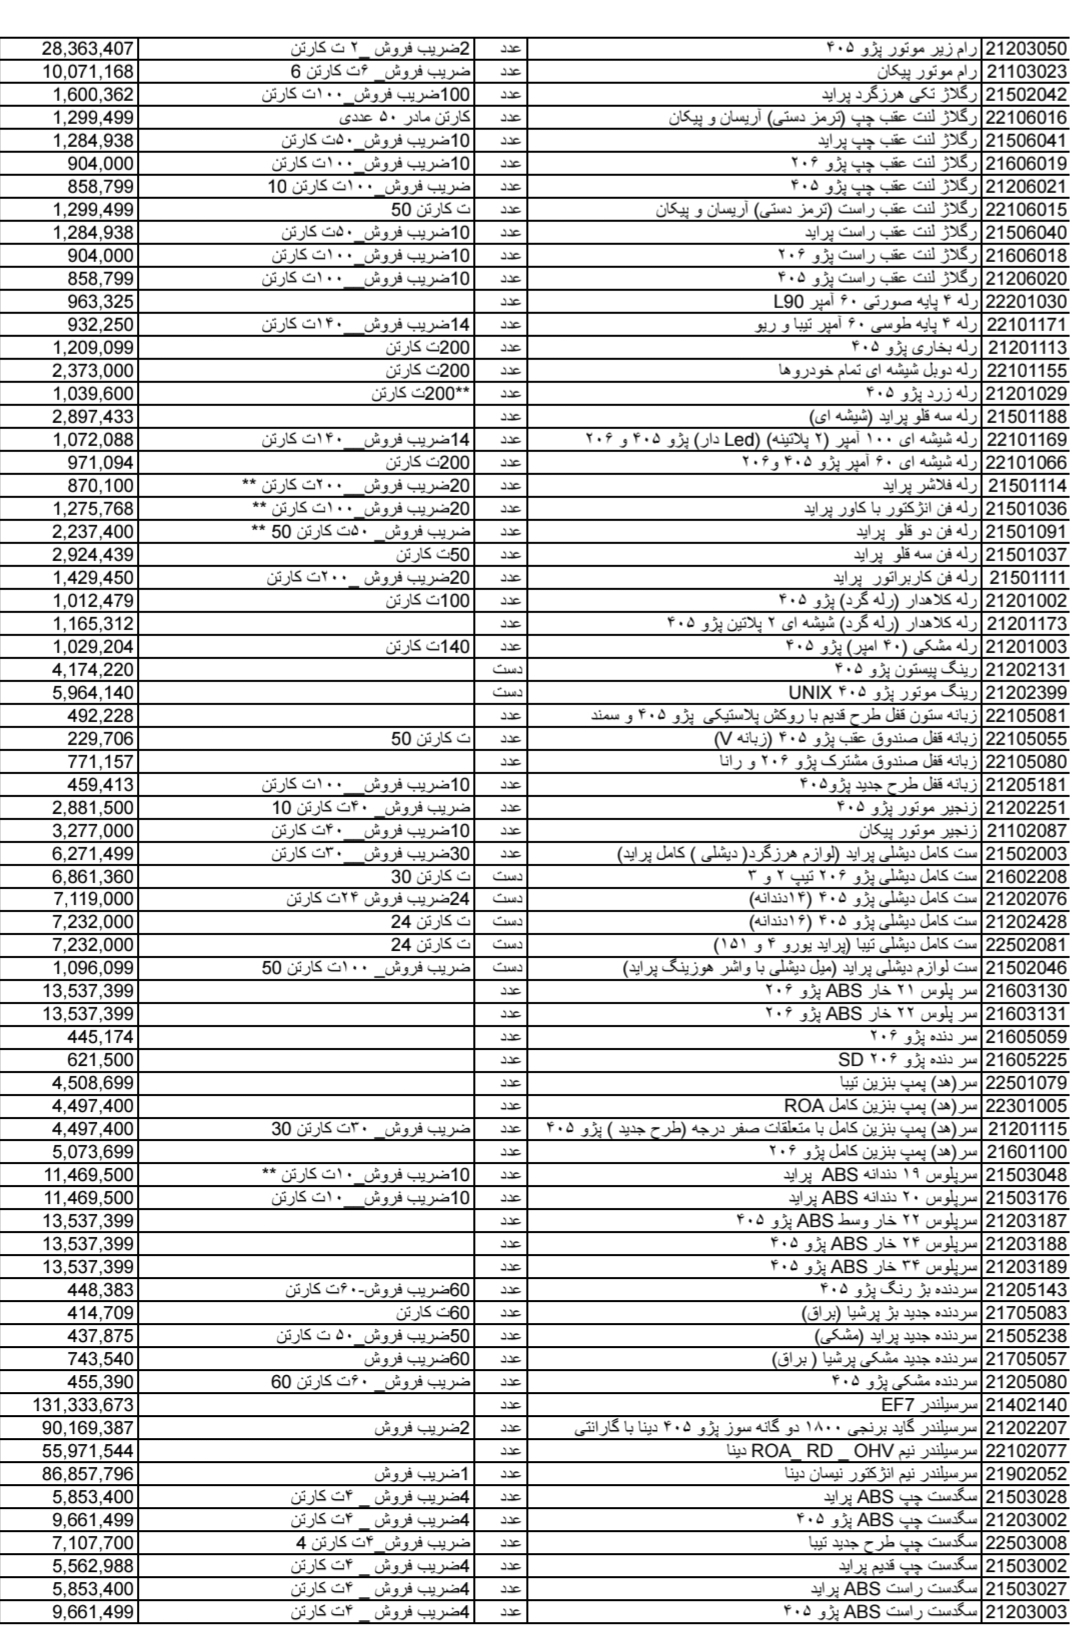 21203050 رام زیر موتور پژو ۴۰۵ عدد 2ضریب فروش _۲ ت کارتن 28,363,407
21103023 رام موتور پیکان عدد ضریب فروش_ ۶ت کارتن 6 10,071,168
21502042 رگلاژ تکی هرزگرد پراید عدد 100ضریب فروش_۱۰۰ت کارتن 1,600,362
22106016 رگلاژ لنت عقب چپ (ترمز دستی) آریسان و پیکان عدد کارتن مادر ۵۰ عددی 1,299,499
21506041 رگلاژ لنت عقب چپ پراید عدد 10ضریب فروش_۵۰ت کارتن 1,284,938
21606019 رگلاژ لنت عقب چپ پژو ۲۰۶ عدد 10ضریب فروش_۱۰۰ت کارتن 904,000
21206021 رگلاژ لنت عقب چپ پژو ۴۰۵ عدد ضریب فروش_۱۰۰ت کارتن 10 858,799
22106015 رگلاژ لنت عقب راست (ترمز دستی) آریسان و پیکان عدد ت کارتن 50 1,299,499
21506040 رگلاژ لنت عقب راست پراید عدد 10ضریب فروش_۵۰ت کارتن 1,284,938
21606018 رگلاژ لنت عقب راست پژو ۲۰۶ عدد 10ضریب فروش_۱۰۰ت کارتن 904,000
21206020 رگلاژ لنت عقب راست پژو ۴۰۵ عدد 10ضریب فروش__۱۰۰ت کارتن 858,799
22201030 رله ۴ پایه صورتی ۶۰ آمپر L90 عدد 963,325
22101171 رله ۴ پایه طوسی ۶۰ آمپر تیبا و ریو عدد 14ضریب فروش__۱۴۰ت کارتن 932,250
21201113 رله بخاری پژو ۴۰۵ عدد 200ت کارتن 1,209,099
22101155 رله دوبل شیشه ای تمام خودروها عدد 200ت کارتن 2,373,000
21201029 رله زرد پژو ۴۰۵ عدد **200ت کارتن 1,039,600
21501188 رله سه قلو پراید (شیشه ای) عدد 2,897,433
22101169 رله شیشه ای ۱۰۰ آمپر (۲ پلاتینه) (Led دار) پژو ۴۰۵ و ۲۰۶ عدد 14ضریب فروش__ ۱۴۰ت کارتن 1,072,088
22101066 رله شیشه ای ۶۰ آمپر پژو ۴۰۵ و۲۰۶ عدد 200ت کارتن 971,094
21501114 رله فلاشر پراید عدد 20ضریب فروش__ ۲۰۰ت کارتن ** 870,100
21501036 رله فن انژکتور با کاور پراید عدد 20ضریب فروش_۱۰۰ت کارتن ** 1,275,768
21501091 رله فن دو قلو  پراید عدد ضریب فروش_ ۵۰ت کارتن 50 ** 2,237,400
21501037 رله فن سه قلو  پراید عدد 50ت کارتن 2,924,439
21501111 رله فن کاربراتور  پراید عدد 20ضریب فروش _۲۰۰ت کارتن 1,429,450
21201002 رله کلاهدار (رله گرد) پژو ۴۰۵ عدد 100ت کارتن 1,012,479
21201173 رله کلاهدار (رله گرد) شیشه ای ۲ پلاتین پژو ۴۰۵ عدد 1,165,312
21201003 رله مشکی (۴۰ امپر) پژو ۴۰۵ عدد 140ت کارتن 1,029,204
21202131 رینگ پیستون پژو ۴۰۵ دست 4,174,220
21202399 رینگ موتور پژو ۴۰۵ UNIX دست 5,964,140
22105081 زبانه ستون قفل طرح قدیم با روکش پلاستیکی  پژو ۴۰۵ و سمند عدد 492,228
22105055 زبانه قفل صندوق عقب پژو ۴۰۵ (زبانه V) عدد ت کارتن 50 229,706
22105080 زبانه قفل صندوق مشترک پژو ۲۰۶ و رانا عدد 771,157
21205181 زبانه قفل طرح جدید پژو۴۰۵ عدد 10ضریب فروش__۱۰۰ت کارتن 459,413
21202251 زنجیر موتور پژو ۴۰۵ عدد ضریب فروش_ ۴۰ت کارتن 10 2,881,500
21102087 زنجیر موتور پیکان عدد 10ضریب فروش__ ۴۰ت کارتن 3,277,000
21502003 ست کامل دیشلی پراید (لوازم هرزگرد( دیشلی ) کامل پراید) عدد 30ضریب فروش__ ۳۰ت کارتن 6,271,499
21602208 ست کامل دیشلی پژو ۲۰۶ تیپ ۲ و ۳ دست ت کارتن 30 6,861,360
21202076 ست کامل دیشلی پژو ۴۰۵ (۱۴دندانه) دست 24ضریب فروش ۲۴ت کارتن 7,119,000
21202428 ست کامل دیشلی پژو ۴۰۵ (۱۶دندانه) دست ت کارتن 24 7,232,000
22502081 ست کامل دیشلی تیبا (پراید یورو ۴ و ۱۵۱) دست ت کارتن 24 7,232,000
21502046 ست لوازم دیشلی پراید (میل دیشلی با واشر هوزینگ پراید) دست ضریب فروش_ ۱۰۰ت کارتن 50 1,096,099
21603130 سر پلوس ۲۱ خار ABS پژو ۲۰۶ عدد 13,537,399
21603131 سر پلوس ۲۲ خار ABS پژو ۲۰۶ عدد 13,537,399
21605059 سر دنده پژو ۲۰۶ عدد 445,174
21605225 سر دنده پژو ۲۰۶ SD عدد 621,500
22501079 سر(هد) پمپ بنزین تیبا عدد 4,508,699
22301005 سر(هد) پمپ بنزین کامل ROA عدد 4,497,400
21201115 سر(هد) پمپ بنزین کامل با متعلقات صفر درجه (طرح جدید ) پژو ۴۰۵ عدد ضریب فروش_ ۳۰ت کارتن 30 4,497,400
21601100 سر(هد) پمپ بنزین کامل پژو ۲۰۶ عدد 5,073,699
21503048 سرپلوس ۱۹ دندانه ABS  پراید عدد 10ضریب فروش__۱۰ت کارتن ** 11,469,500
21503176 سرپلوس ۲۰ دندانه ABS پراید عدد 10ضریب فروش__۱۰ت کارتن 11,469,500
21203187 سرپلوس ۲۲ خار وسط ABS پژو ۴۰۵ عدد 13,537,399
21203188 سرپلوس ۲۴ خار ABS پژو ۴۰۵ عدد 13,537,399
21203189 سرپلوس ۳۴ خار ABS پژو ۴۰۵ عدد 13,537,399
21205143 سردنده بژ رنگ پژو ۴۰۵ عدد 60ضریب فروش-۶۰ت کارتن 448,383
21705083 سردنده جدید بژ پرشیا (براق) عدد 60ت کارتن 414,709
21505238 سردنده جدید پراید (مشکی) عدد 50ضریب فروش_۵۰ ت کارتن 437,875
21705057 سردنده جدید مشکی پرشیا ( براق) عدد 60ضریب فروش 743,540
21205080 سردنده مشکی پژو ۴۰۵ عدد ضریب فروش_ ۶۰ت کارتن 60 455,390
21402140 سرسیلندر EF7 عدد 131,333,673
21202207 سرسیلندر گاید برنجی ۱۸۰۰ دو گانه سوز پژو ۴۰۵ دینا با گارانتی عدد 2ضریب فروش 90,169,387
22102077 سرسیلندر نیم ROA_RD _ OHV دینا عدد 55,971,544
21902052 سرسیلندر نیم انژکتور نیسان دینا عدد 1ضریب فروش 86,857,796
21503028 سگدست چپ ABS پراید عدد 4ضریب فروش _ ۴ت کارتن 5,853,400
21203002 سگدست چپ ABS پژو ۴۰۵ عدد 4ضریب فروش _ ۴ت کارتن 9,661,499
22503008 سگدست چپ طرح جدید تیبا عدد ضریب فروش_۴ت کارتن 4 7,107,700
21503002 سگدست چپ قدیم پراید عدد 4ضریب فروش _ ۴ت کارتن 5,562,988
21503027 سگدست راست ABS پراید عدد 4ضریب فروش _ ۴ت کارتن 5,853,400
21203003 سگدست راست ABS پژو ۴۰۵ عدد 4ضریب فروش _ ۴ت کارتن 9,661,499